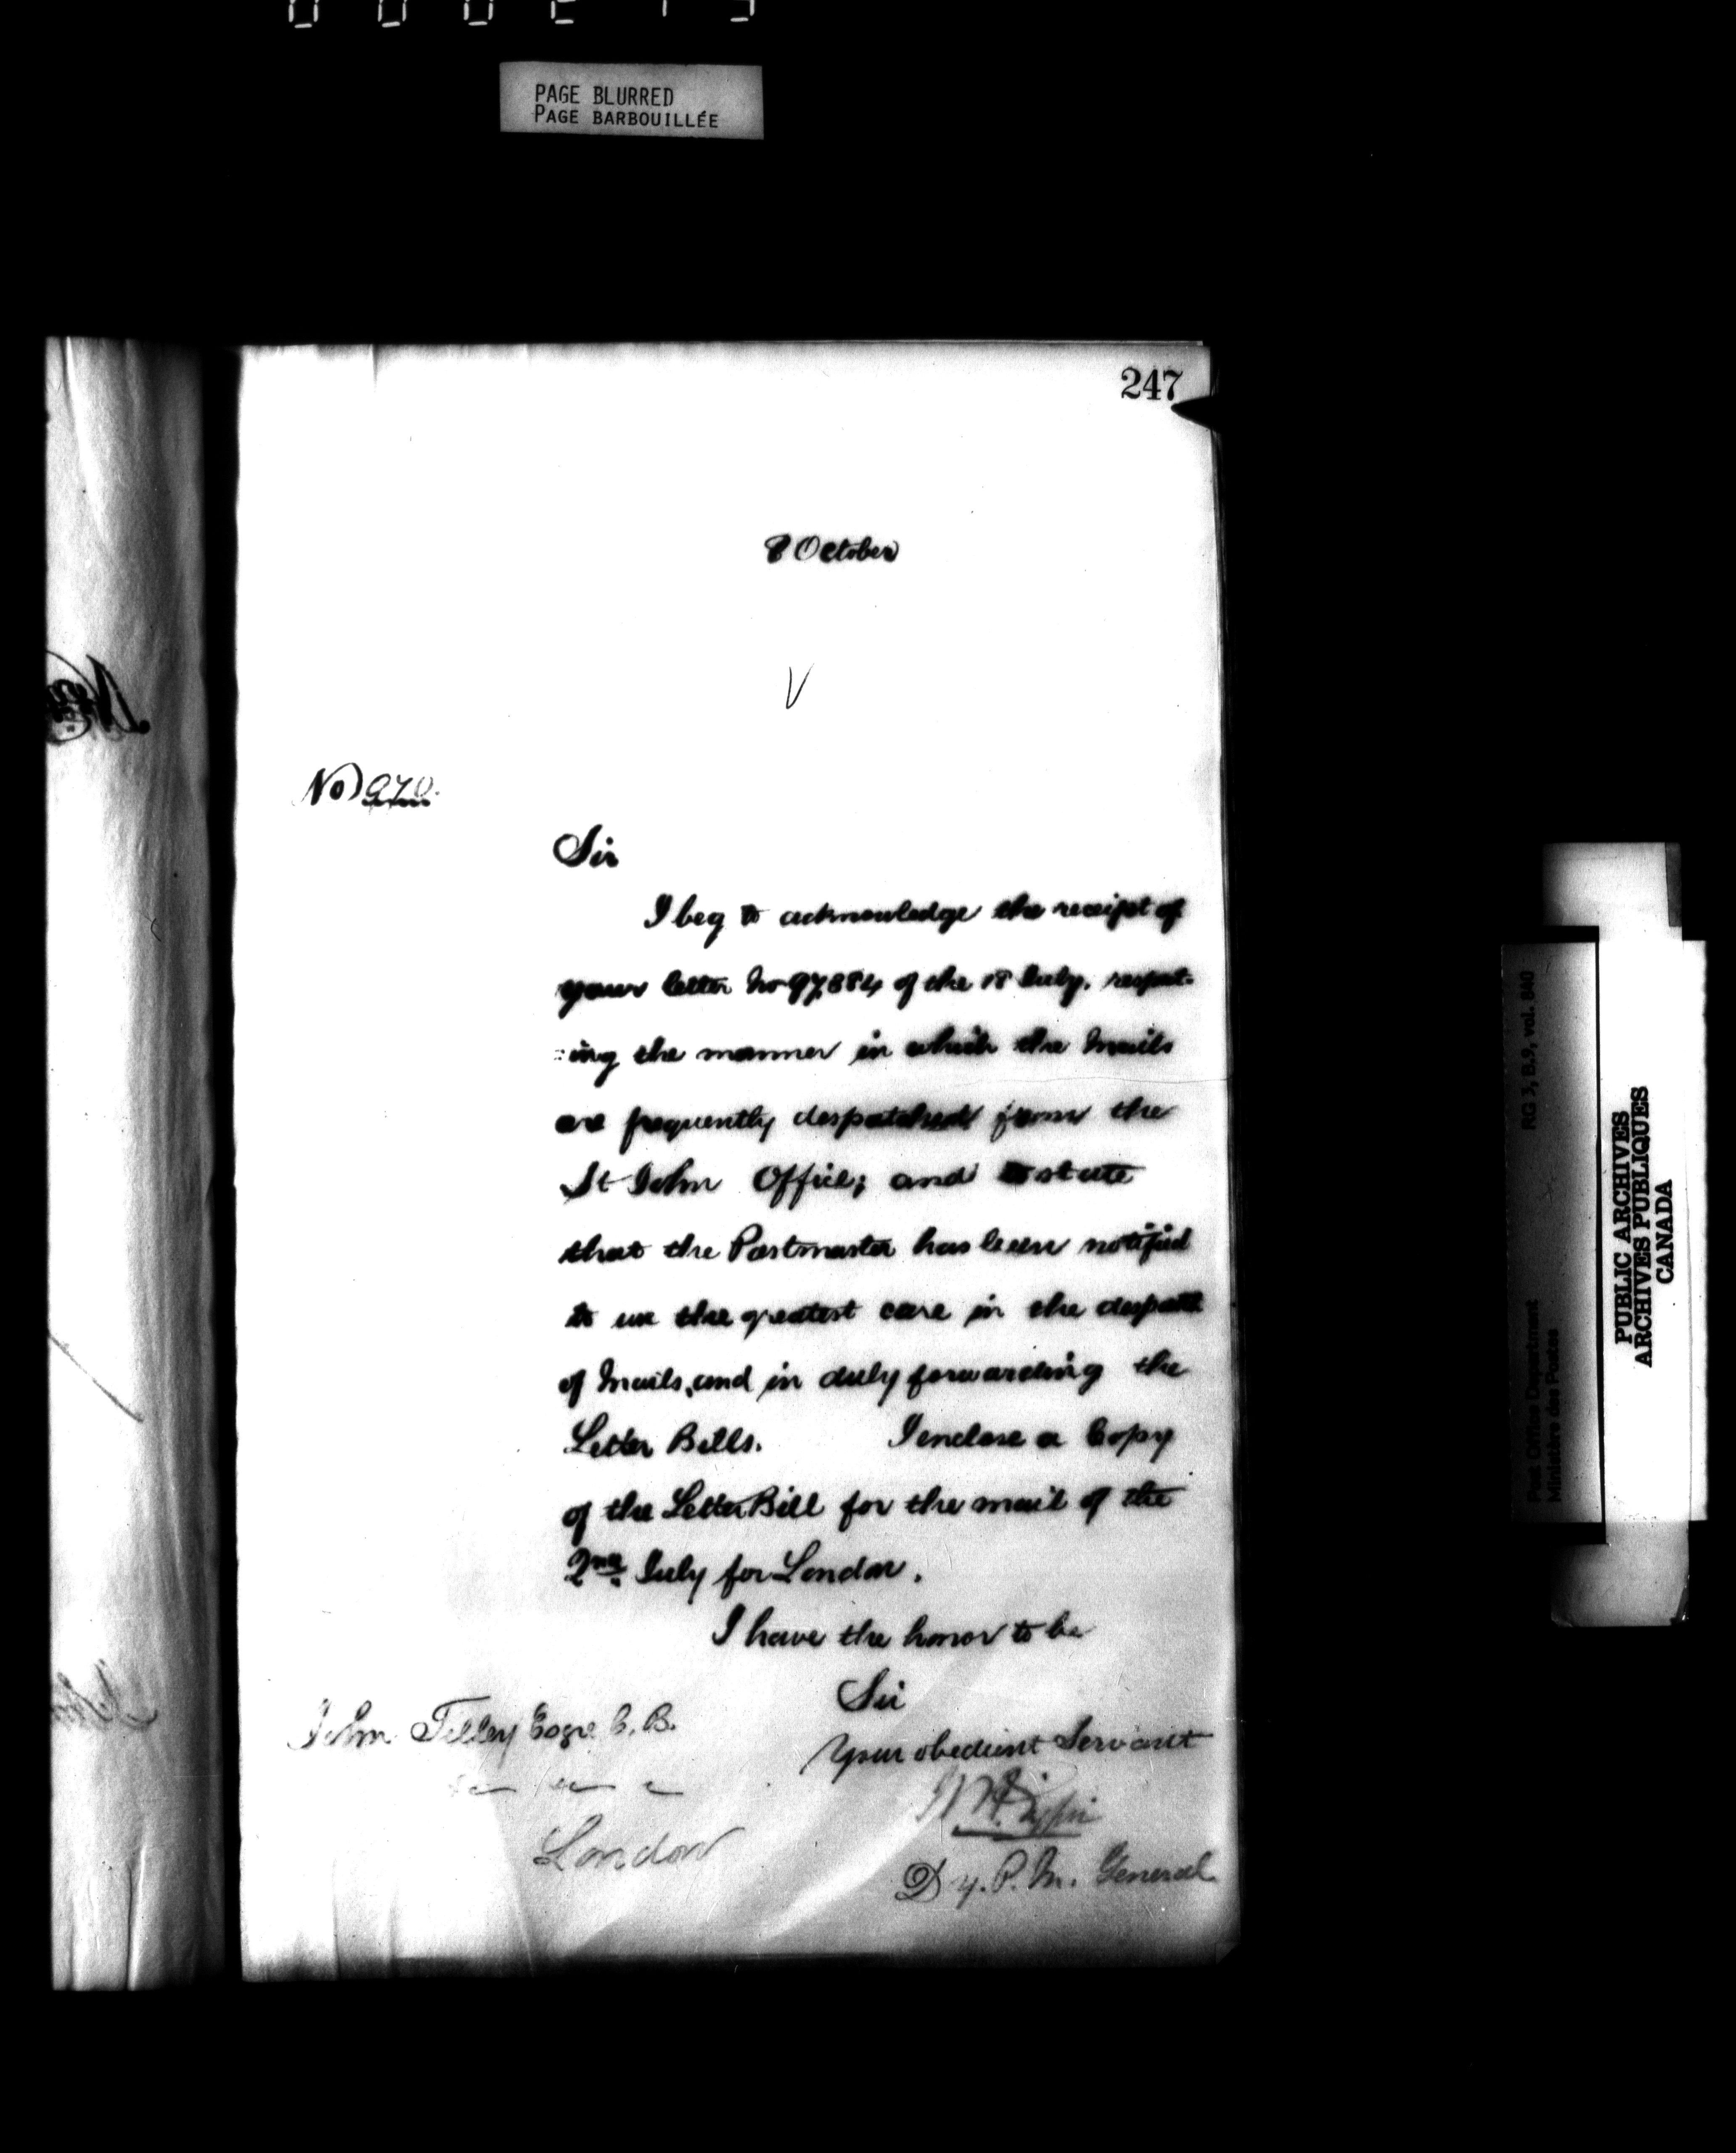 PAGE BLURRED
PAGE BARBOUILLÉE
247
8 October
V
No 970.
Sir
I beg to acknowledge the receipt of
your letter No 97,884 of the 18 July, respect-
:ing the manner in which the Mails
are frequently despatched from the
St John Office; and to state
that the Postmaster has been notified
to use the greatest care in the despatch
of Mails, and in duly forwarding the
Letter Bills. I enclose a Copy
of the Letter Bill for the mail of the
2nd July for London.
I have the honor to be
Sir
Your obedient Servant
Dy. P. M. General
John Tilley Esqre C. B.
London
RG 3, B.9, vol. 840
Post Office Department
Ministère des Postes
PUBLIC ARCHIVES
ARCHIVES PUBLIQUES
CANADA